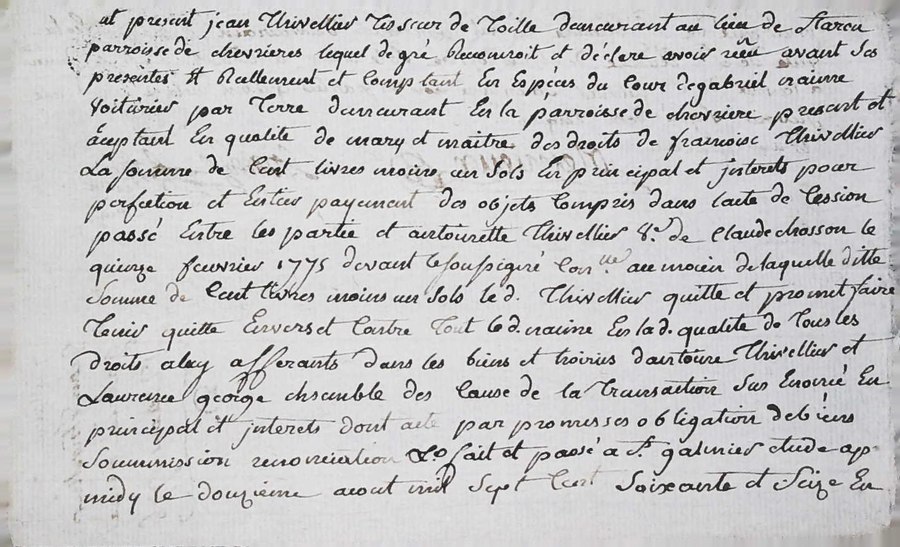 at present jean thivellier tisseur de toille demeurant au lieu de
parroisse de chevrieres lequel de gré Reconnoit et déclere avoir reçu avant ses
presentes et Reellement et comptant En Espéces du cour de gabriel craanne
voiturier par terre demeurant En la parroisse de chevriere present et
acceptant En qualité de mary et maitre des droits de francoise thivellier
La somme de Cent livres moins un sols En principal et jnterets pour
perfection et Entier payement des objets Compris dans l'acte de Cession
passé Entre les partie et antoinette thivellier de Claude chasson le
quinze feuvrier 1775 devant le soussigné au moien de laquelle ditte
Somme de Cent livres moins un sols le d. thivellier quitte et promet faire
tenir quitte Envers et Contre tout le d. craanne En la d. qualité de tous les
droits a luy afferants dans les biens et hoiries d'antoine thivellier et
Laurance george Ensemble des Cause de la transaction Sus Enoncé En
principal et jnterets dont acte par promesses obligation de biens
Soummission renonciation fait et passé a St galmier etude apr
midy le douzieme aout mil Sept Cent Soixante et Seize En